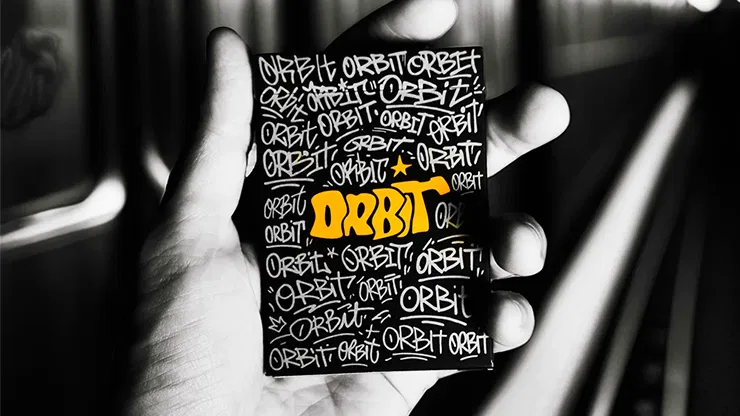 ORBIT ORBiT ORBIT
ORBIT ORBIT ORBiT
ORBiT ORBIT ORBIT ORBIT
ORBIT ORBIT ORBIT
ORBIT ORBIT
ORBIT ORBIT OR
ORBIT
ORBIT ORBIT ORBIT
ORBIT ORBIT ORBit
ORBIT ORBIT ORBIT
ORBIT ORBiT